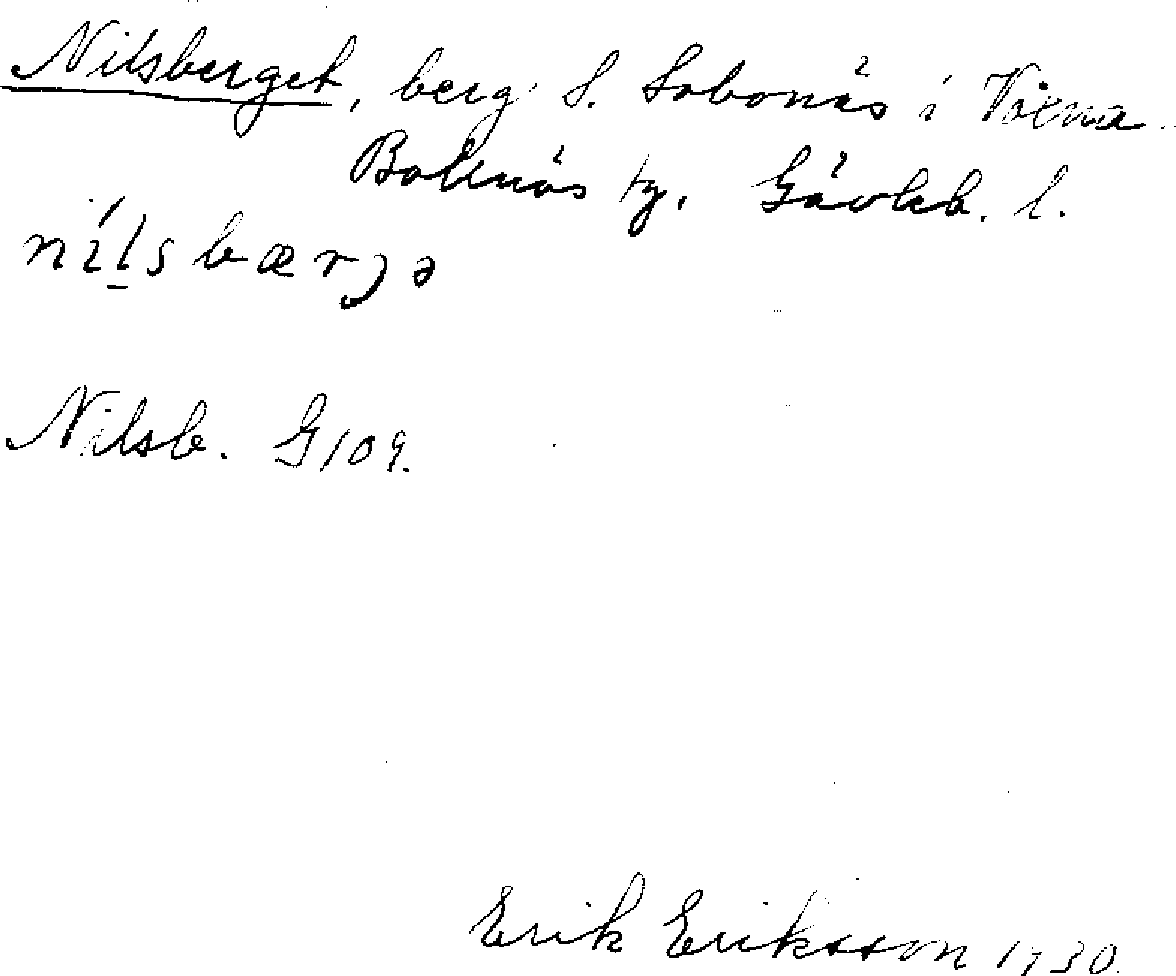 Nilsberget, berg S. Lobonäs i Voxna
Bollnäs tg, Gävleb. l.
nílsbærjə
Nilsb. G109.
Erik Eriksson 1930.